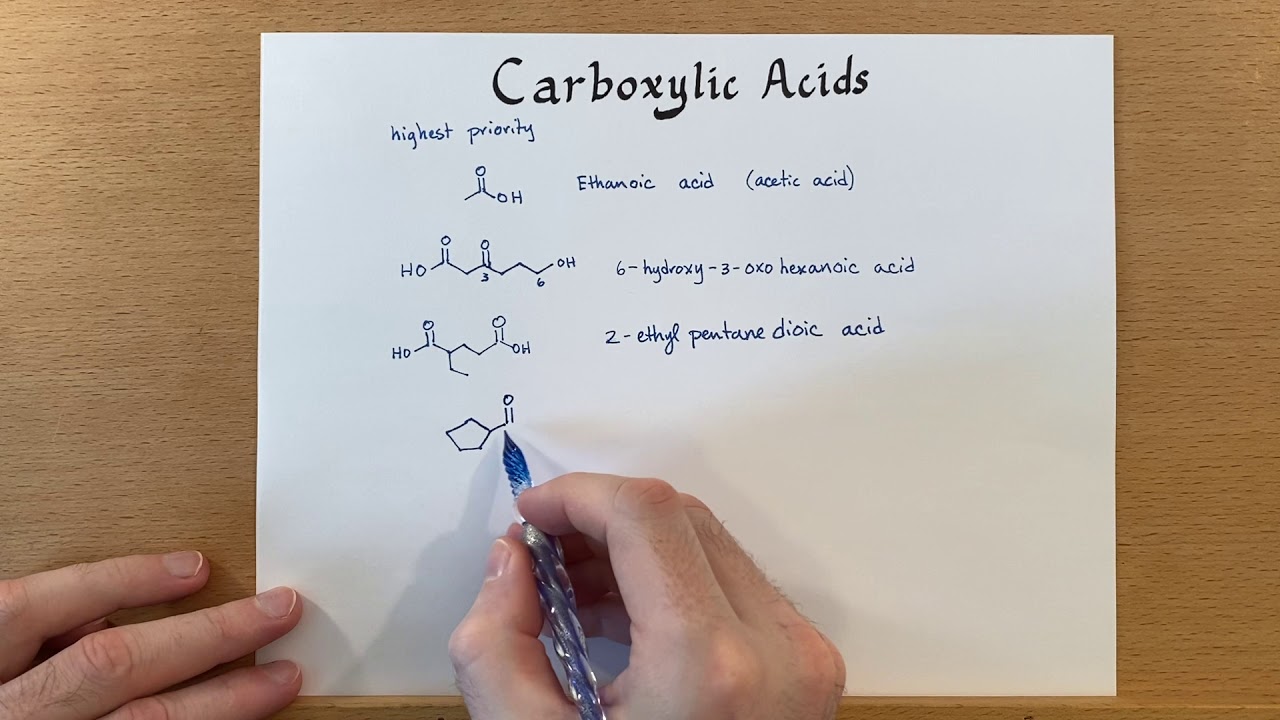 Carboxylic Acids
highest priority
O
OH
Ethanoic acid (acetic acid)
O O
HO OH
3 6
6-hydroxy-3-oxo hexanoic acid
O O
HO OH
2-ethyl pentane dioic acid
O